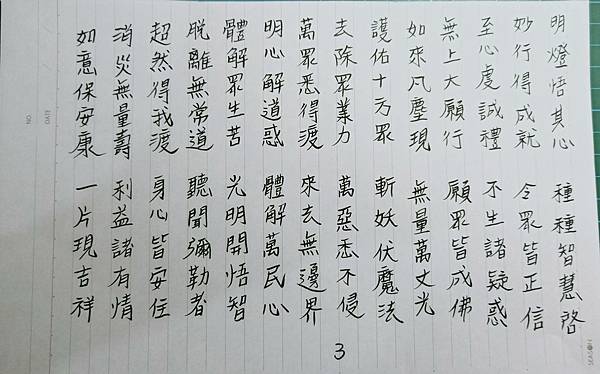 明燈悟其心 種種智慧啓
妙行得成就 令眾皆正信
至心虔誠禮 不生諸疑惑
無上大願行 願眾皆成佛
如來凡塵現 無量萬丈光
護佑十方眾 斬妖伏魔法
去除眾業力 萬惡悉不侵
萬眾悉得渡 來去無邊界
明心解道惑 體解萬民心
體解眾生苦 光明開悟智
脫離無常道 聽聞彌勒者
超然得我渡 身心皆安住
消災無量壽 利益諸有情
如意保安康 一片現吉祥
3
NO.
DATE
SEASON